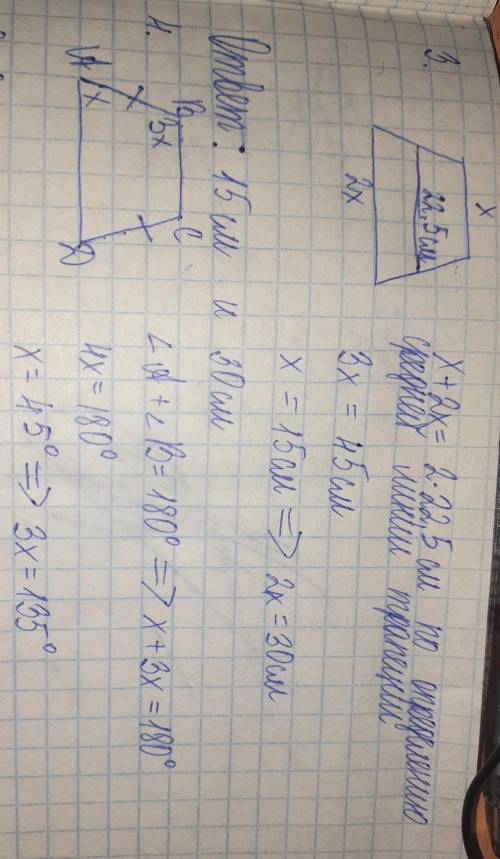 3.
x
22,5см
2x
x + 2x = 2·22,5 см по определению
средней линии трапеции
3x = 45см
x = 15см => 2x = 30см
Ответ: 15см и 30см
4.
B
3x
C
A
x
D
∠A + ∠B = 180° => x + 3x = 180°
4x = 180°
x = 45° => 3x = 135°